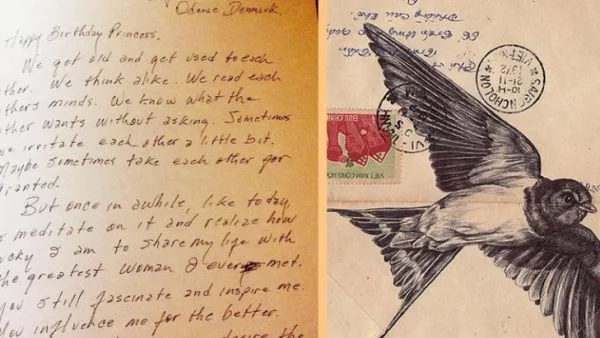 Odense Denmark.
Happy Birthday Princess,
We got old and get used to each
ther. We think alike. We read each
thers minds. We know what the
ther wants without asking. Sometimes
we irritate each other a little bit.
Maybe sometimes take each other for
ranted.
But once in awhile, like today,
meditate on it and realize how
ucky I am to share my life with
the greatest woman I ever met.
You still fascinate and inspire me.
You influence me for the better.
desire the
SAIGON-CHOLON
10-H
21-11
1972
VIET-N
BUU CHINH
VIET NAM CONG HOA